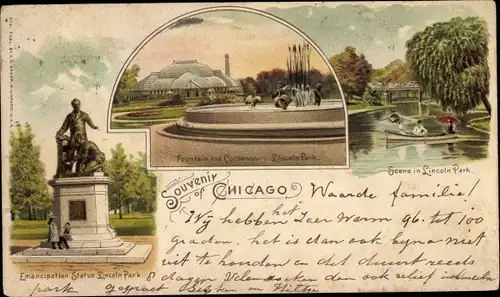 Fountain and Conservatory Lincoln Park.
Scene in Lincoln Park.
Souvenir of CHICAGO
Emancipation Statue Lincoln Park
Waarde familie!
Wij hebben het zeer warm 96 tot 100
graden, het is dan ook bijna niet
uit te houden en dit duurt reeds
8 dagen. Velen zoeken dan ook relief in Lincoln
park gegroet